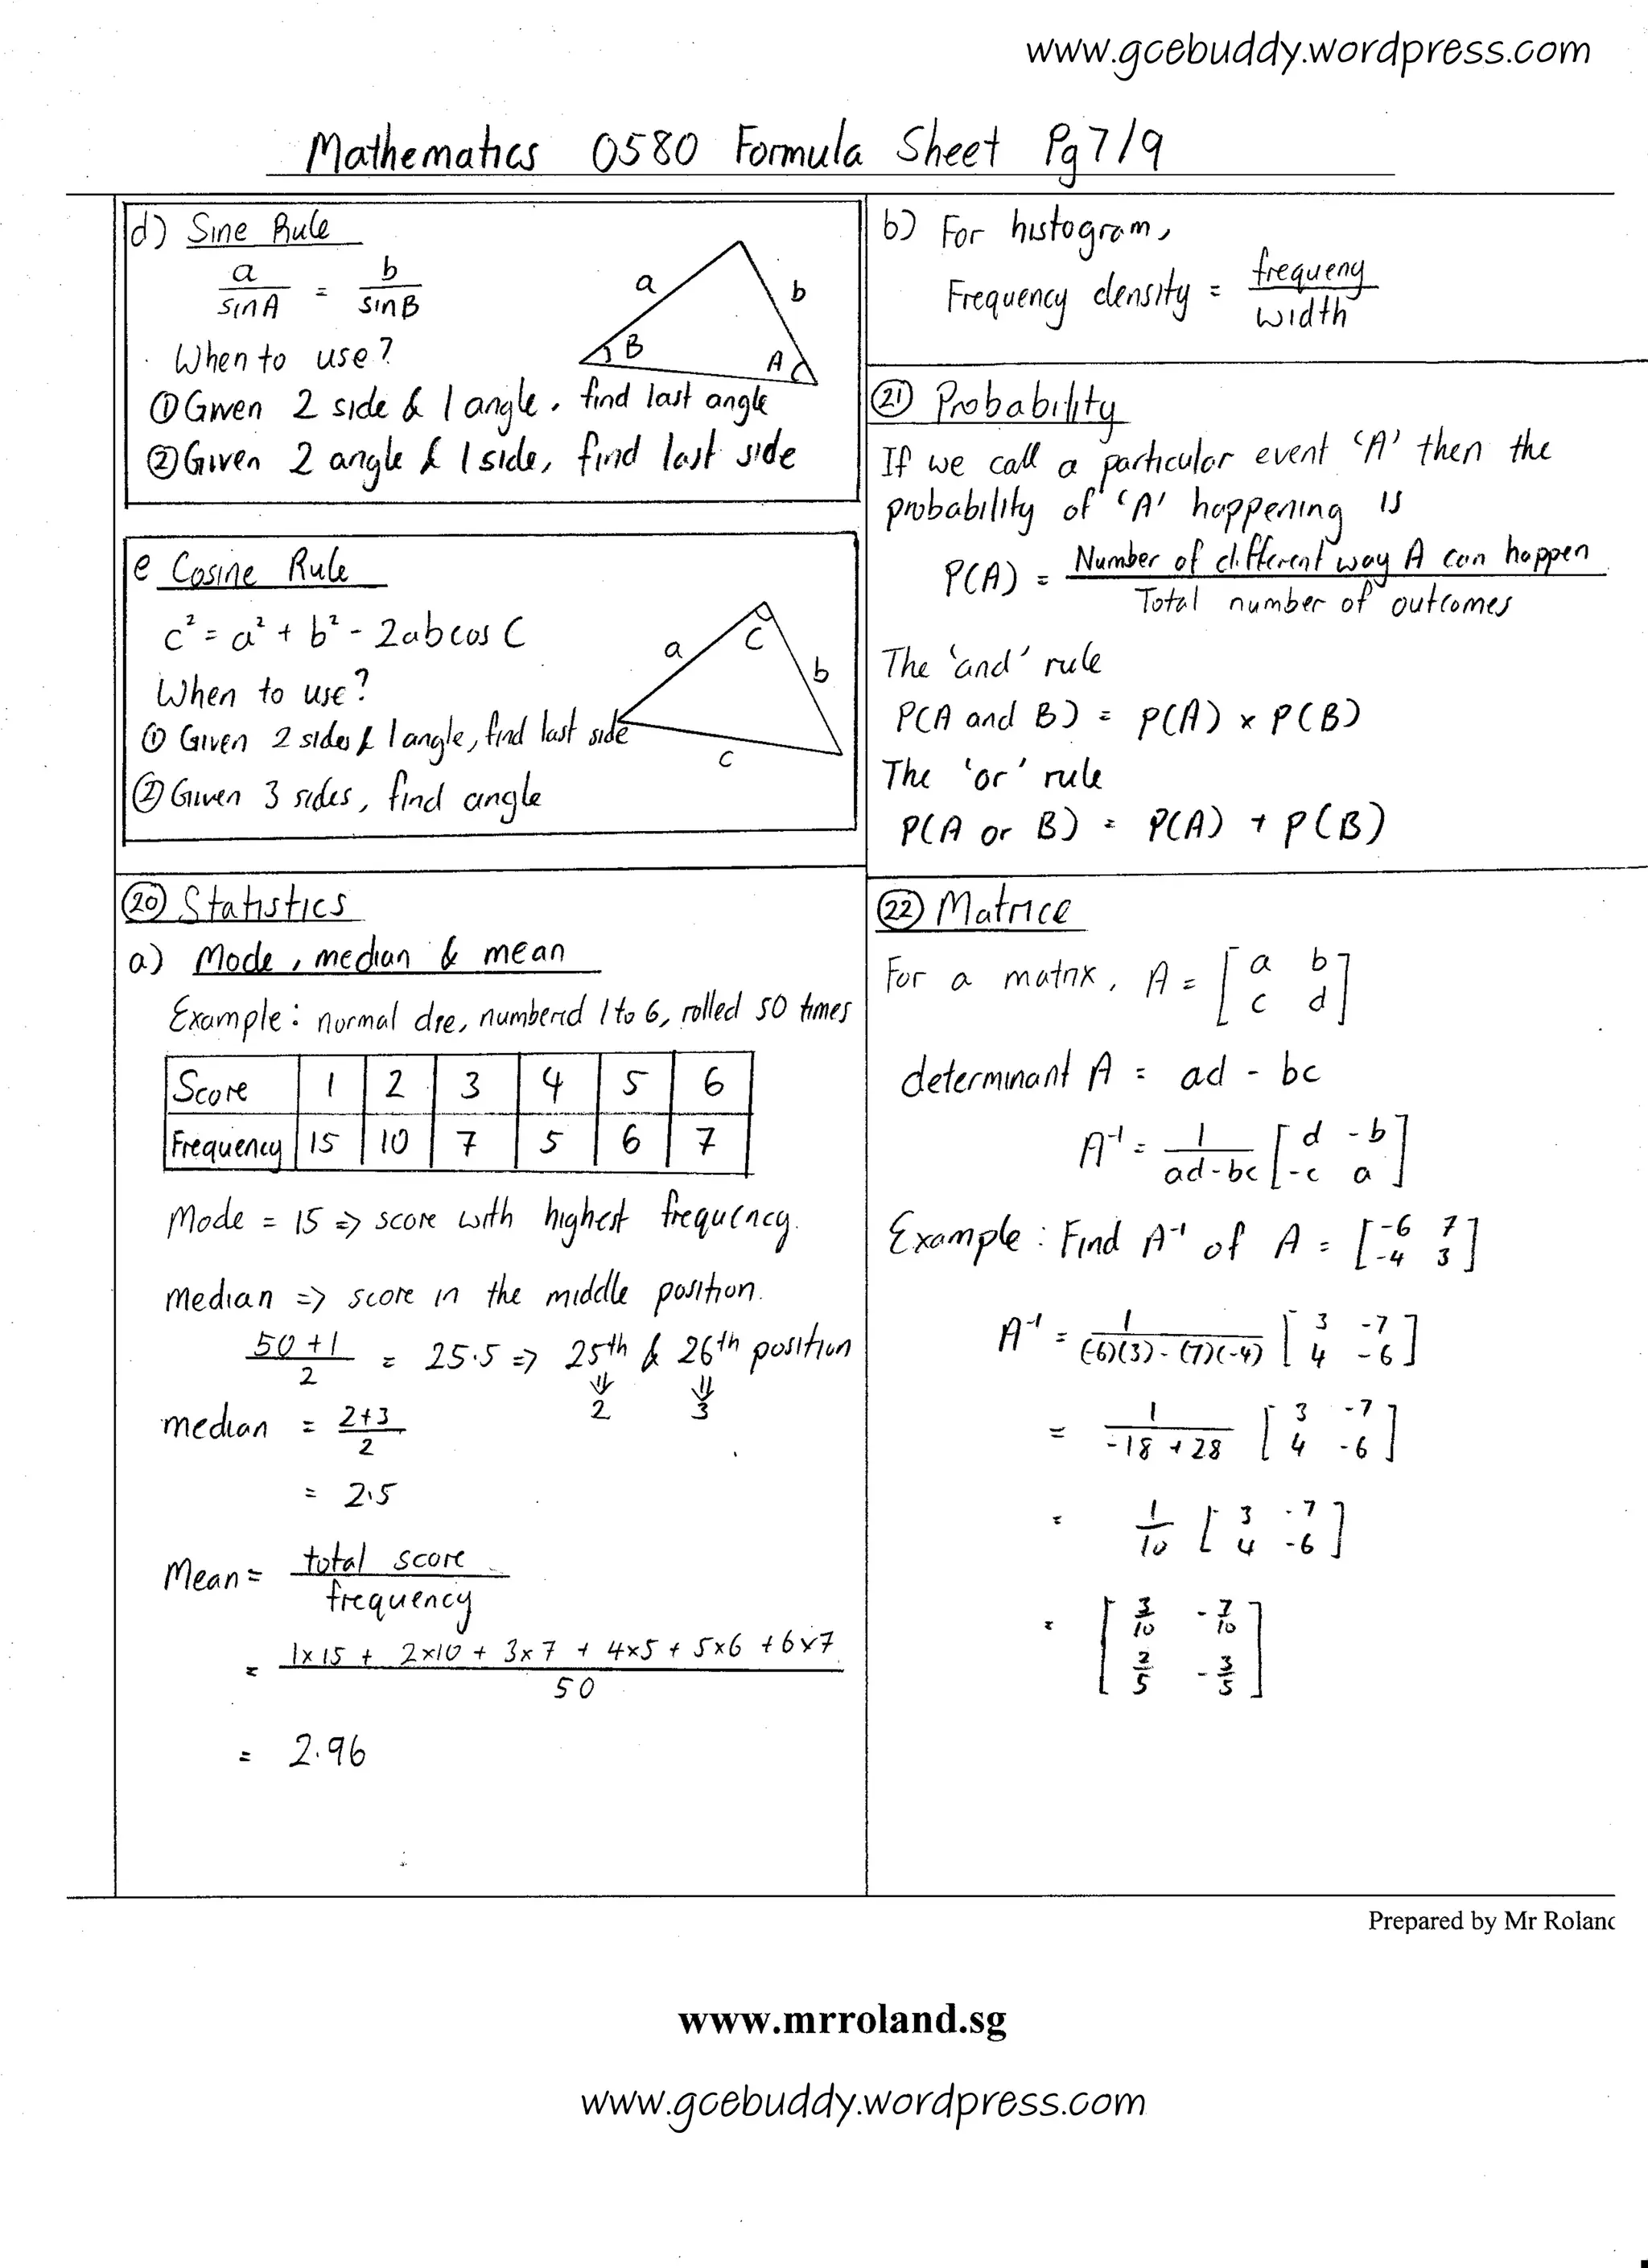 www.gcebuddy.wordpress.com
Mathematics 0580 Formula Sheet Pg 7/9
d) Sine Rule
a/sinA = b/sinB
a
b
B
A
When to use?
① Given 2 side & 1 angle, find last angle
② Given 2 angle & 1 side, find last side
e Cosine Rule
c² = a² + b² - 2abcos C
a
C
b
c
When to use?
① Given 2 sides & 1 angle, find last side
② Given 3 sides, find angle
⑳ Statistics
a) Mode, median & mean
Example: normal die, numbered 1 to 6, rolled 50 times
Score 1 2 3 4 5 6
Frequency 15 10 7 5 6 7
Mode = 15 => score with highest frequency.
Median => score in the middle position.
(50+1)/2 = 25.5 => 25th & 26th position
⇓ ⇓
2 3
median = (2+3)/2
= 2.5
Mean = total score / frequency
= (1x15 + 2x10 + 3x7 + 4x5 + 5x6 + 6x7) / 50
= 2.96
b) For histogram,
Frequency density = frequency / width
㉑ Probability
If we call a particular event 'A' then the
probability of 'A' happening is
P(A) = Number of different way A can happen / Total number of outcomes
The 'and' rule
P(A and B) = P(A) x P(B)
The 'or' rule
P(A or B) = P(A) + P(B)
㉒ Matrice
For a matrix, A = [a b; c d]
determinant A = ad - bc
A⁻¹ = 1/(ad-bc) [d -b; -c a]
Example: Find A⁻¹ of A = [-6 7; -4 3]
A⁻¹ = 1/((-6)(3) - (7)(-4)) [3 -7; 4 -6]
= 1/(-18 + 28) [3 -7; 4 -6]
= 1/10 [3 -7; 4 -6]
= [3/10 -7/10; 2/5 -3/5]
Prepared by Mr Rolanc
www.mrroland.sg
www.gcebuddy.wordpress.com